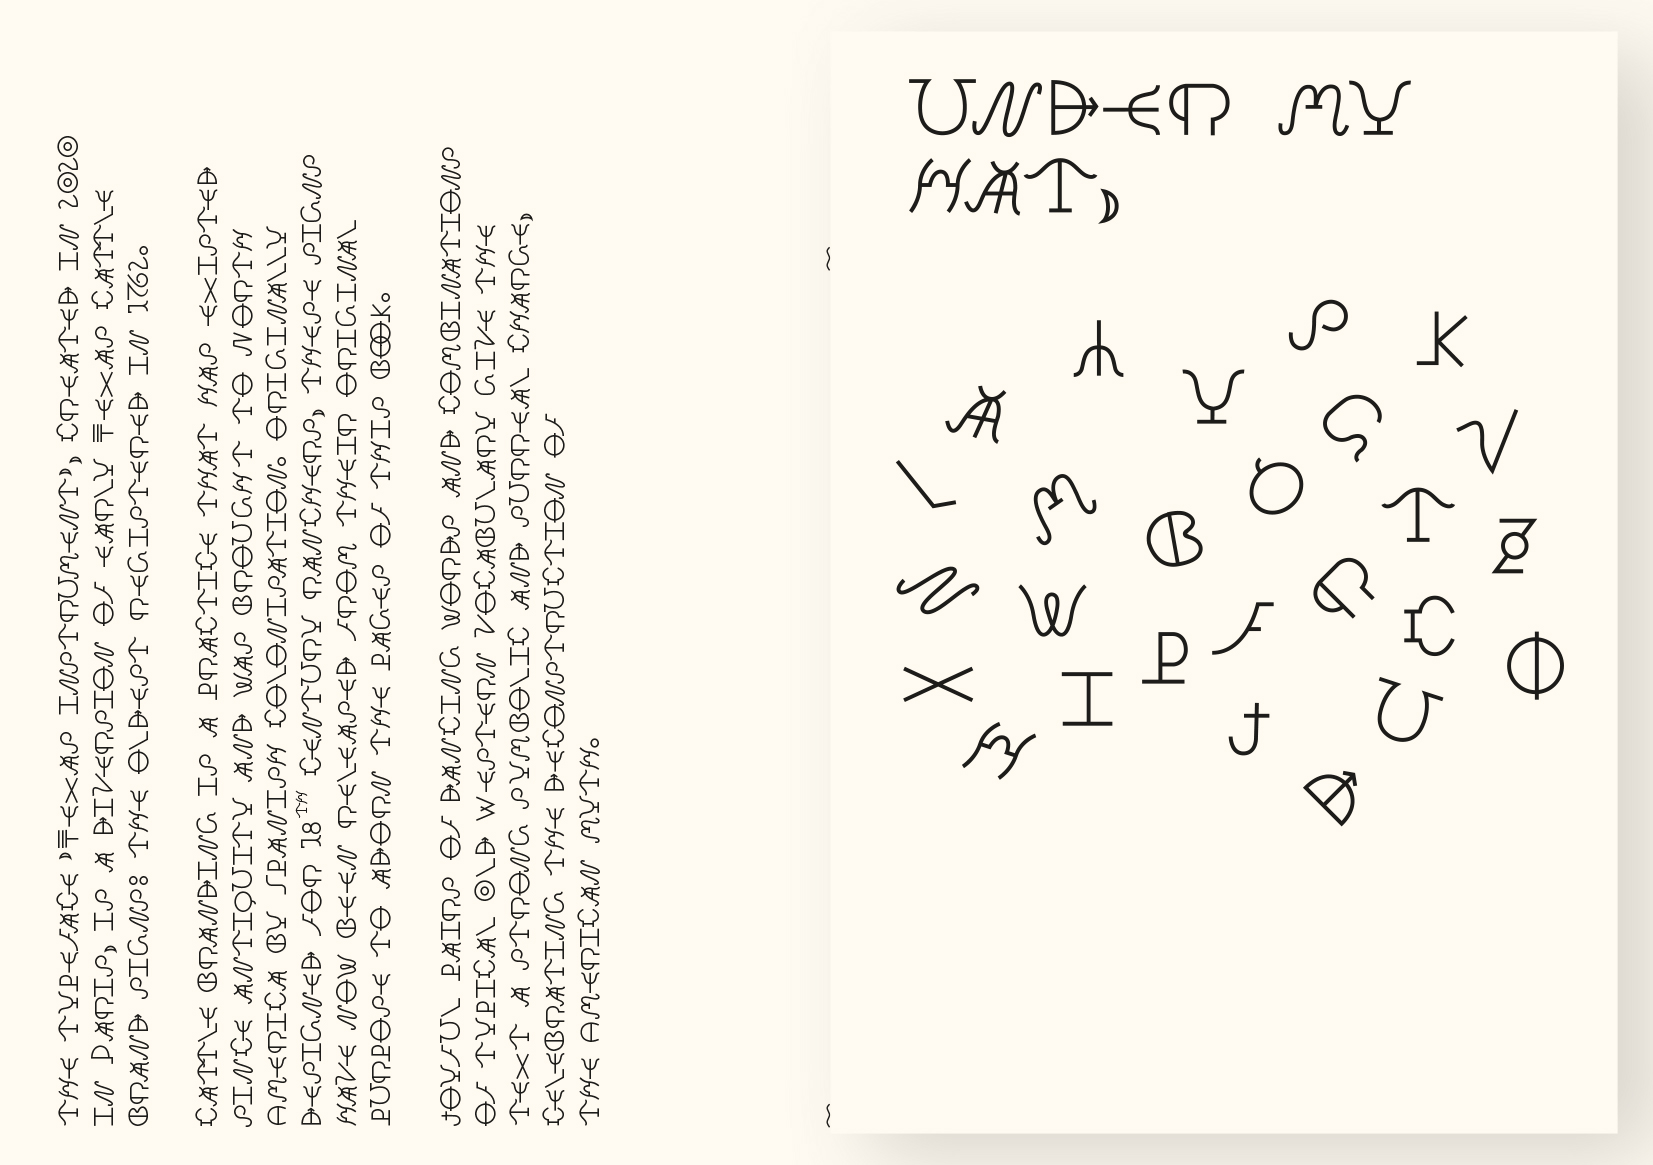 THE TYPEFACE ’TEXAS INSTRUMENT’, CREATED IN 2020
IN PARIS, IS A DIVERSION OF EARLY TEXAS CATTLE
BRAND SIGNS: THE OLDEST REGISTERED IN 1762.
CATTLE BRANDING IS A PRACTICE THAT HAS EXISTED
SINCE ANTIQUITY AND WAS BROUGHT TO NORTH
AMERICA BY SPANISH COLONISATION. ORIGINALLY
DESIGNED FOR 18TH CENTURY RANCHERS, THESE SIGNS
HAVE NOW BEEN RELEASED FROM THEIR ORIGINAL
PURPOSE TO ADORN THE PAGES OF THIS BOOK.
JOYFUL PAIRS OF DANCING WORDS AND COMBINATIONS
OF TYPICAL OLD WESTERN VOCABULARY GIVE THE
TEXT A STRONG SYMBOLIC AND SURREAL CHARGE,
CELEBRATING THE DECONSTRUCTION OF
THE AMERICAN MYTH.
UNDER MY
HAT,
S
K
E
Y
A
G
V
L
M
Q
T
B
Z
N
W
R
C
F
P
O
X
I
U
J
H
D